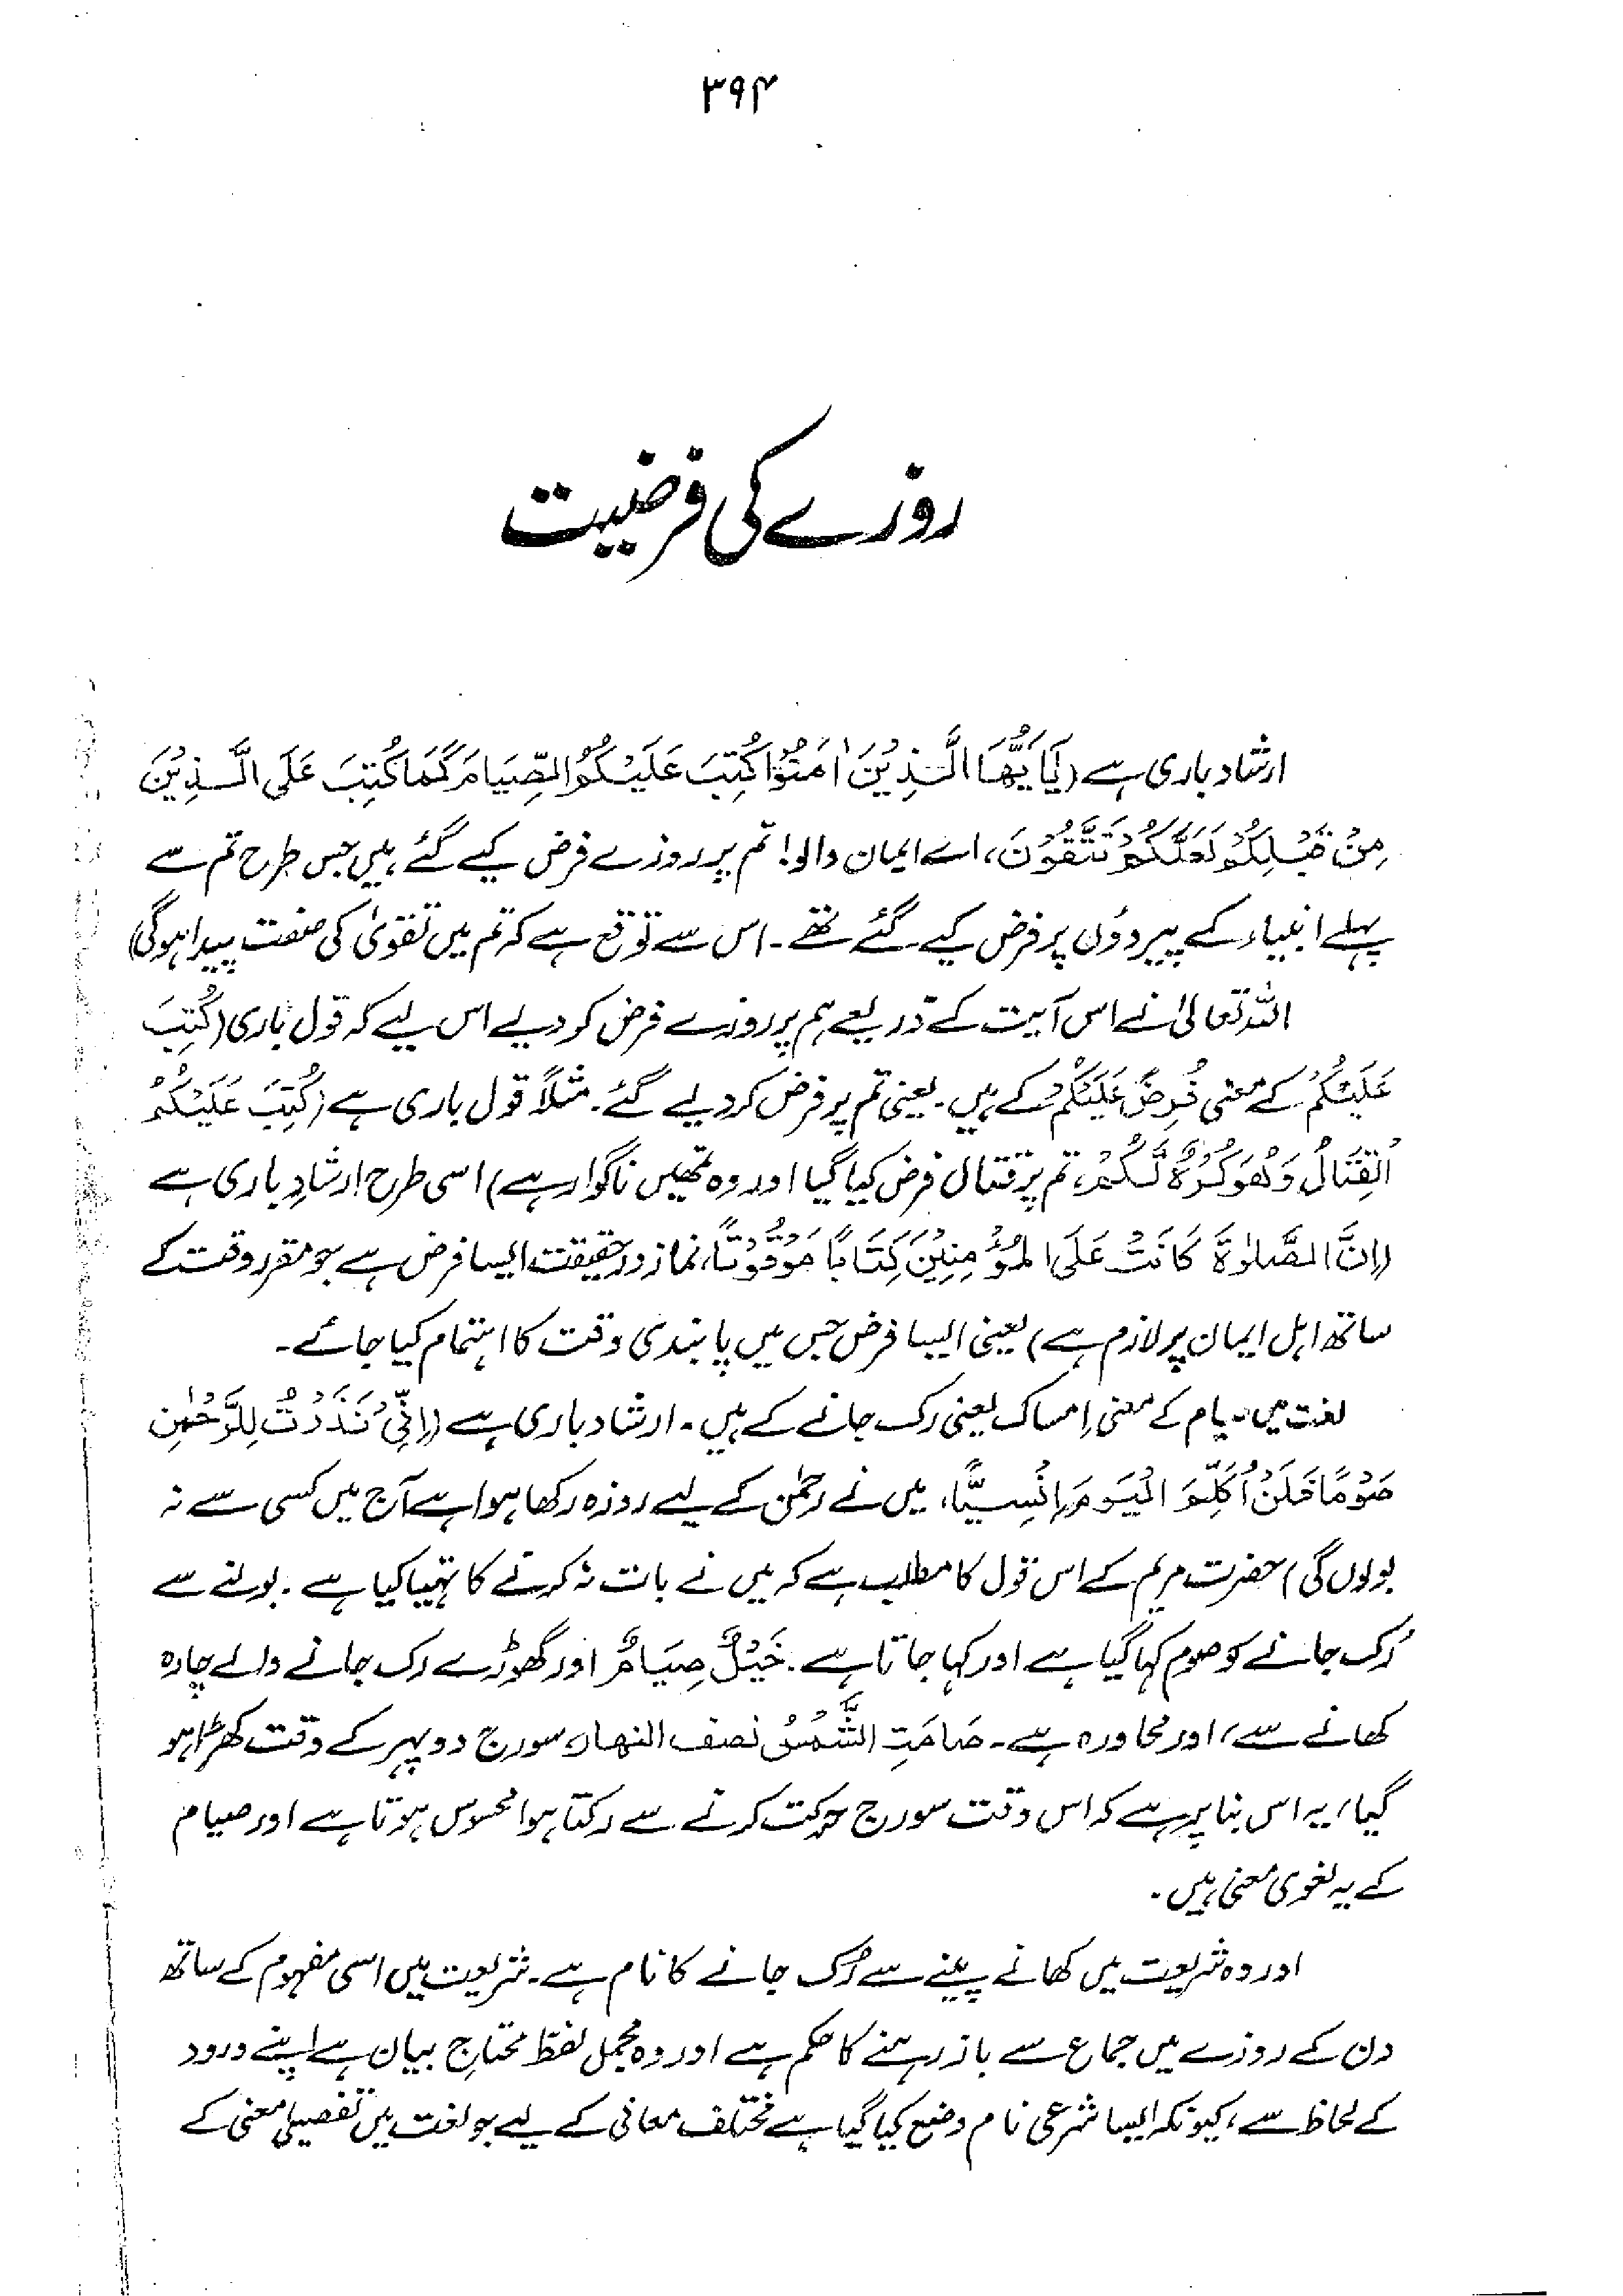 ۳۹۴
روزے کی فرضیت
ارشاد باری ہے (یَا یُّھَا الَّذِیْنَ اٰمَنُوْا کُتِبَ عَلَیْکُمُ الصِّیَامُ کَمَا کُتِبَ عَلَی الَّذِیْنَ
مِنْ قَبْلِکُمْ لَعَلَّکُمْ تَتَّقُوْنَ، اے ایمان والو! تم پر روزے فرض کیے گئے ہیں جس طرح تم سے
پہلے انبیاء کے پیروؤں پر فرض کیے گئے تھے۔ اس سے توقع ہے کہ تم میں تقویٰ کی صفت پیدا ہوگی)
اللہ تعالیٰ نے اس آیت کے ذریعے ہم پر روزے فرض کر دیے اس لیے کہ قول باری (کُتِبَ
عَلَیْکُمْ کے معنی فُرِضَ عَلَیْکُمْ کے ہیں۔ یعنی تم پر فرض کر دیے گئے۔ مثلاً قول باری ہے (کُتِبَ عَلَیْکُمُ
الْقِتَالُ وَھُوَ کُرْہٌ لَّکُمْ، تم پر قتال فرض کیا گیا اور وہ تمھیں ناگوار ہے) اسی طرح ارشادِ باری ہے
(اِنَّ الصَّلٰوۃَ کَانَتْ عَلَی الْمُؤْمِنِیْنَ کِتَابًا مَوْقُوْتًا، نماز درحقیقت ایسا فرض ہے جو مقرر وقت کے
ساتھ اہل ایمان پر لازم ہے) یعنی ایسا فرض جس میں پابندی وقت کا اہتمام کیا جائے۔
لغت میں صیام کے معنی اِمساک یعنی رک جانے کے ہیں۔ ارشاد باری ہے (اِنِّیْ نَذَرْتُ لِلرَّحْمٰنِ
صَوْمًا فَلَنْ اُکَلِّمَ الْیَوْمَ اِنْسِیًّا، میں نے رحمٰن کے لیے روزہ رکھا ہوا ہے آج میں کسی سے نہ
بولوں گی) حضرت مریم کے اس قول کا مطلب ہے کہ میں نے بات نہ کرنے کا تہیا کیا ہے۔ بولنے سے
رُک جانے کو صوم کہا گیا ہے اور کہا جاتا ہے۔ خَیْلٌ صِیَامٌ اور گھوڑے رک جانے والے چارہ
کھانے سے، اور محاورہ ہے۔ صَامَتِ الشَّمْسُ نصف النھار، سورج دوپہر کے وقت کھڑا ہو
گیا، یہ اس بنا پر ہے کہ اس وقت سورج حرکت کرنے سے رکتا ہوا محسوس ہوتا ہے اور صیام
کے یہ لغوی معنی ہیں۔
اور وہ شریعت میں کھانے پینے سے رُک جانے کا نام ہے۔ شریعت میں اسی مفہوم کے ساتھ
دن کے روزے میں جماع سے باز رہنے کا حکم ہے اور وہ مجمل لفظ محتاجِ بیان ہے اپنے ورود
کے لحاظ سے، کیونکہ ایسا شرعی نام وضع کیا گیا ہے مختلف معانی کے لیے جو لغت میں تفصیلی معنی کے